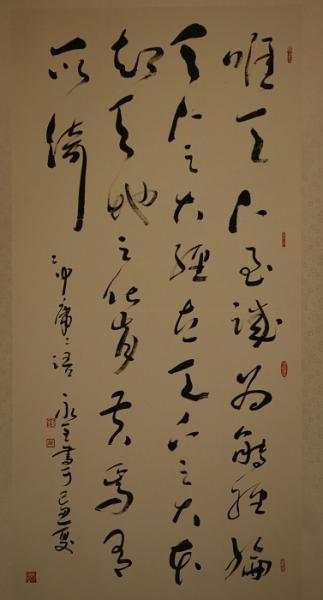 唯天下至誠為能經綸
天下之大經立天下之大本
知天地之化育夫焉有
所倚
中庸 語
書于己丑夏